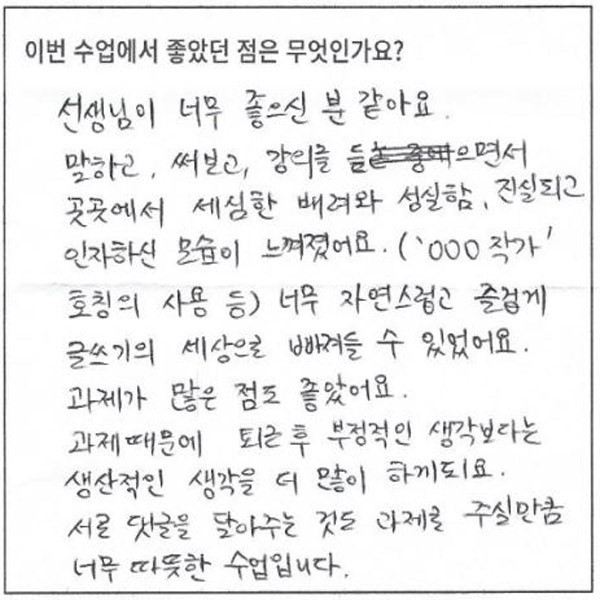 이번 수업에서 좋았던 점은 무엇인가요?
선생님이 너무 좋으신 분 같아요.
말하고, 써보고, 강의를 들으면서
곳곳에서 세심한 배려와 성실함, 진실되고
인자하신 모습이 느껴졌어요. ('000 작가'
호칭의 사용 등) 너무 자연스럽고 즐겁게
글쓰기의 세상으로 빠져들 수 있었어요.
과제가 많은 점도 좋았어요.
과제때문에 퇴근 후 부정적인 생각보다는
생산적인 생각을 더 많이 하게되요.
서로 댓글을 달아주는 것도 과제로 주실만큼
너무 따뜻한 수업입니다.